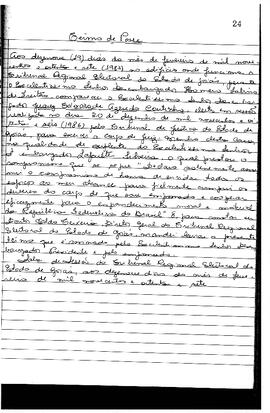 24
Termo de Posse
Aos dezenove (19) dias do mês de fevereiro de mil nove
centos e oitenta e sete (1987) no edifício onde funciona o
Tribunal Regional Eleitoral do Estado de Goiás, perante
o Excelentíssimo Senhor Desembargador Homero Sabino
de Freitas compareceu o Excelentíssimo Senhor Desembar
gador
realizada no dia 20 de dezembro de mil novecentos e oi
tenta e seis (1986) pelo Tribunal de Justiça do Estado de
Goiás, para exercer o cargo de Juiz Membro desta Casa
na qualidade de
o qual prestou o
compromisso que se segue: "declaro solenemente assu
mir o compromisso de honra de
esforço ao meu alcance para fielmente cumprir os
deveres do cargo de que sou empossado e cooperar
eficazmente para o engrandecimento moral e material
da República Federativa do Brasil". E, para constar eu
Diretor Geral do Tribunal Regional
Eleitoral do Estado de Goiás, mandei lavrar o presente
termo que é assinado pelo Excelentíssimo Senhor Desem
bargador Presidente e pelo empossado.
do Tribunal Regional Eleitoral do
Estado de Goiás, aos dezenove dias do mês de feve
reiro de mil novecentos e oitenta e sete